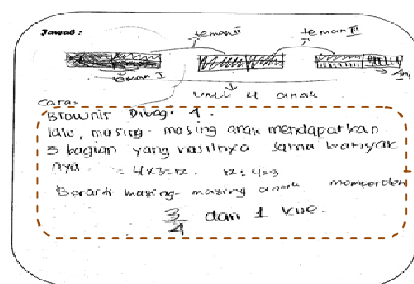 Jawab:
teman II teman III
teman I
untuk 4 anak
cara:
Brownis Dibagi 4.
lalu, masing-masing anak mendapatkan
3 bagian yang hasilnya sama banyak
nya = 4x3=12. 12:4=3
Berarti masing-masing anak memperoleh
3/4 dari 1 kue.